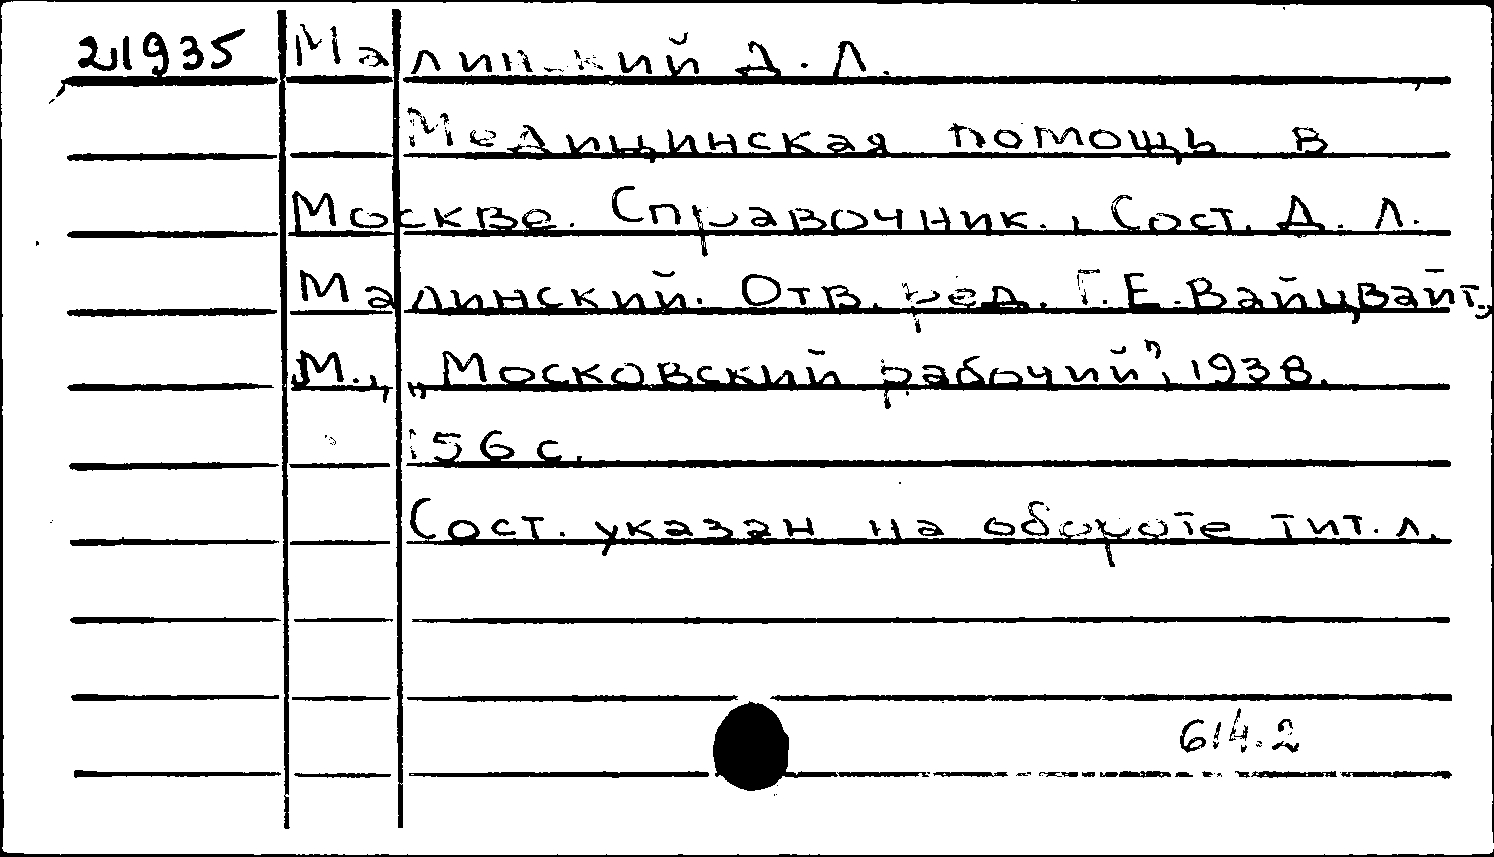 21935 Малинский Д. Л.
Медицинская помощь в
Москве. Справочник., Сост. Д. Л.
Малинский. Отв. ред. Г. Е. Вайцвайт.,
М., „Московский рабочий", 1938.
156 с.
Сост. указан на обороте тит. л.
614.2